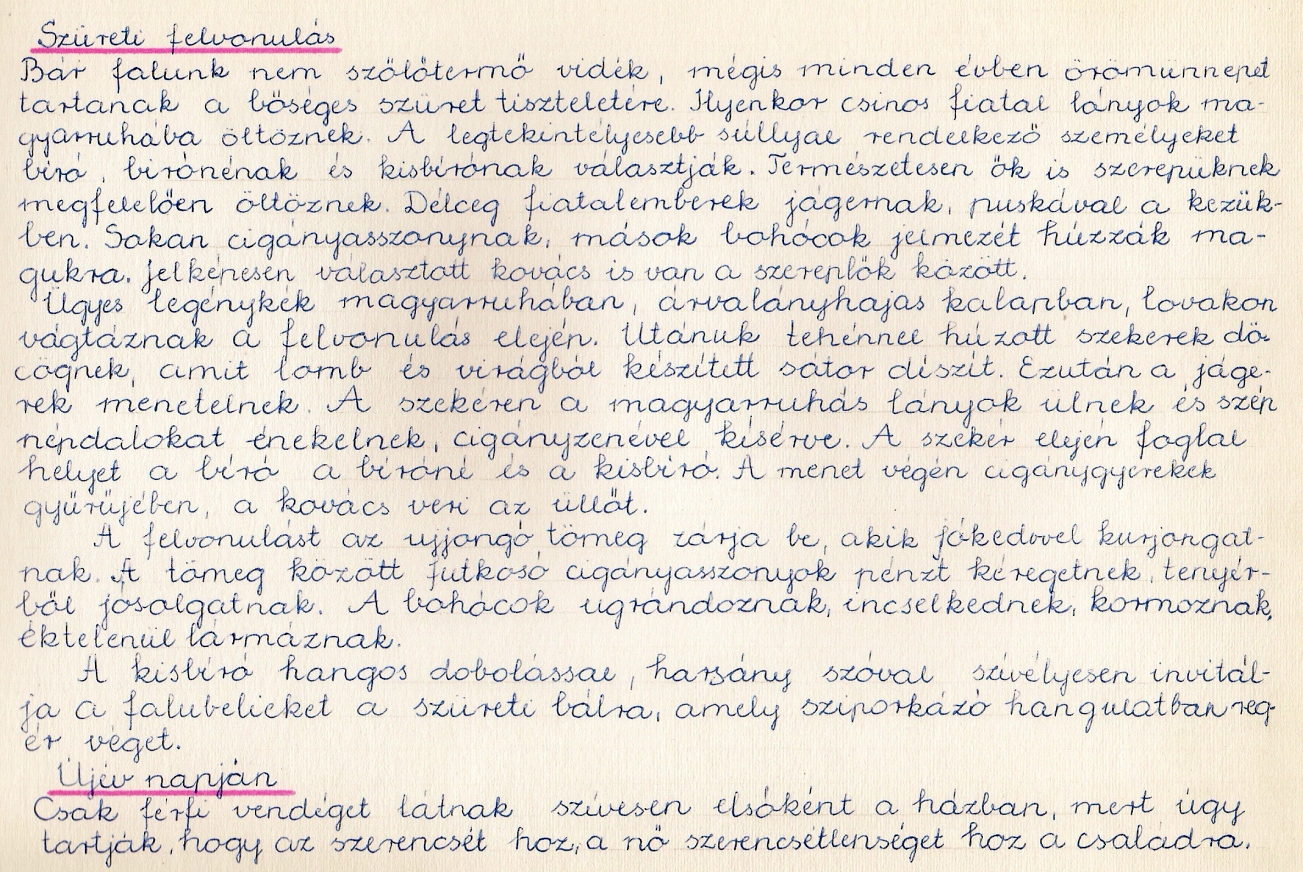 Szüreti felvonulás
Bár falunk nem szőlőtermő vidék, mégis minden évben örömünnepet
tartanak a bőséges szüret tiszteletére. Ilyenkor csinos fiatal lányok ma-
gyarruhába öltöznek. A legtekintélyesebb súllyal rendelkező személyeket
biró, birónénak és kisbirónak választják. Természetesen ők is szerepüknek
megfelelően öltöznek. Délceg fiatalemberek jágernak, puskával a kezük-
ben. Sokan cigányasszonynak, mások bohócok jelmezét húzzák ma-
gukra. Jelképesen választott kovács is van a szereplők között.
Ügyes legénykék magyarruhában, árvalányhajas kalapban, lovakon
vágtáznak a felvonulás elején. Utánuk tehénnel húzott szekerek dö-
cögnek, amit lomb és virágból készített sátor díszit. Ezután a jáge-
rek menetelnek. A szekéren a magyarruhás lányok ülnek és szép
népdalokat énekelnek, cigányzenével kisérve. A szekér elején foglal
helyet a biró a biróné és a kisbiró. A menet végén cigánygyerekek
gyűrűjében, a kovács veri az üllőt.
A felvonulást az ujjongó tömeg zárja be, akik jókedvvel kurjongat-
nak. A tömeg között futkosó cigányasszonyok pénzt kéregetnek, tenyér-
ből jósolgatnak. A bohócok ugrándoznak, incselkednek, kormoznak,
éktelenül lármáznak.
A kisbiró hangos dobolással, harsány szóval szívélyesen invitál-
ja a falubelieket a szüreti bálra, amely sziporkázó hangulatban reg-
ér véget.
Újév napján
Csak férfi vendéget látnak szívesen elsőként a házban, mert úgy
tartják, hogy az szerencsét hoz, a nő szerencsétlenséget hoz a családra.